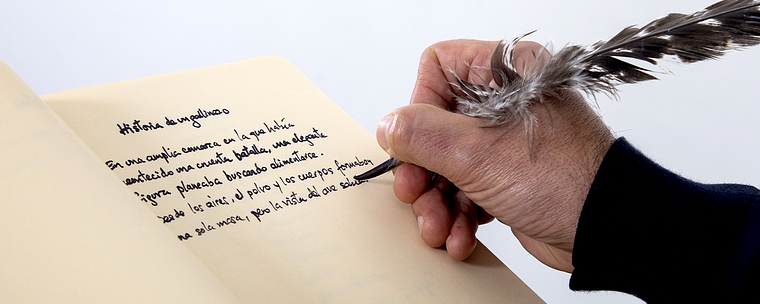 Historia de un gallinazo
En una amplia comarca en la que había
acontecido una cruenta batalla, una elegante
figura planeaba buscando alimentarse.
Desde los aires, el polvo y los cuerpos formaban
una sola masa, pero la vista del ave sabía